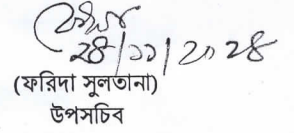 ২৪/১১/২০২৪
(ফরিদা সুলতানা)
উপসচিব